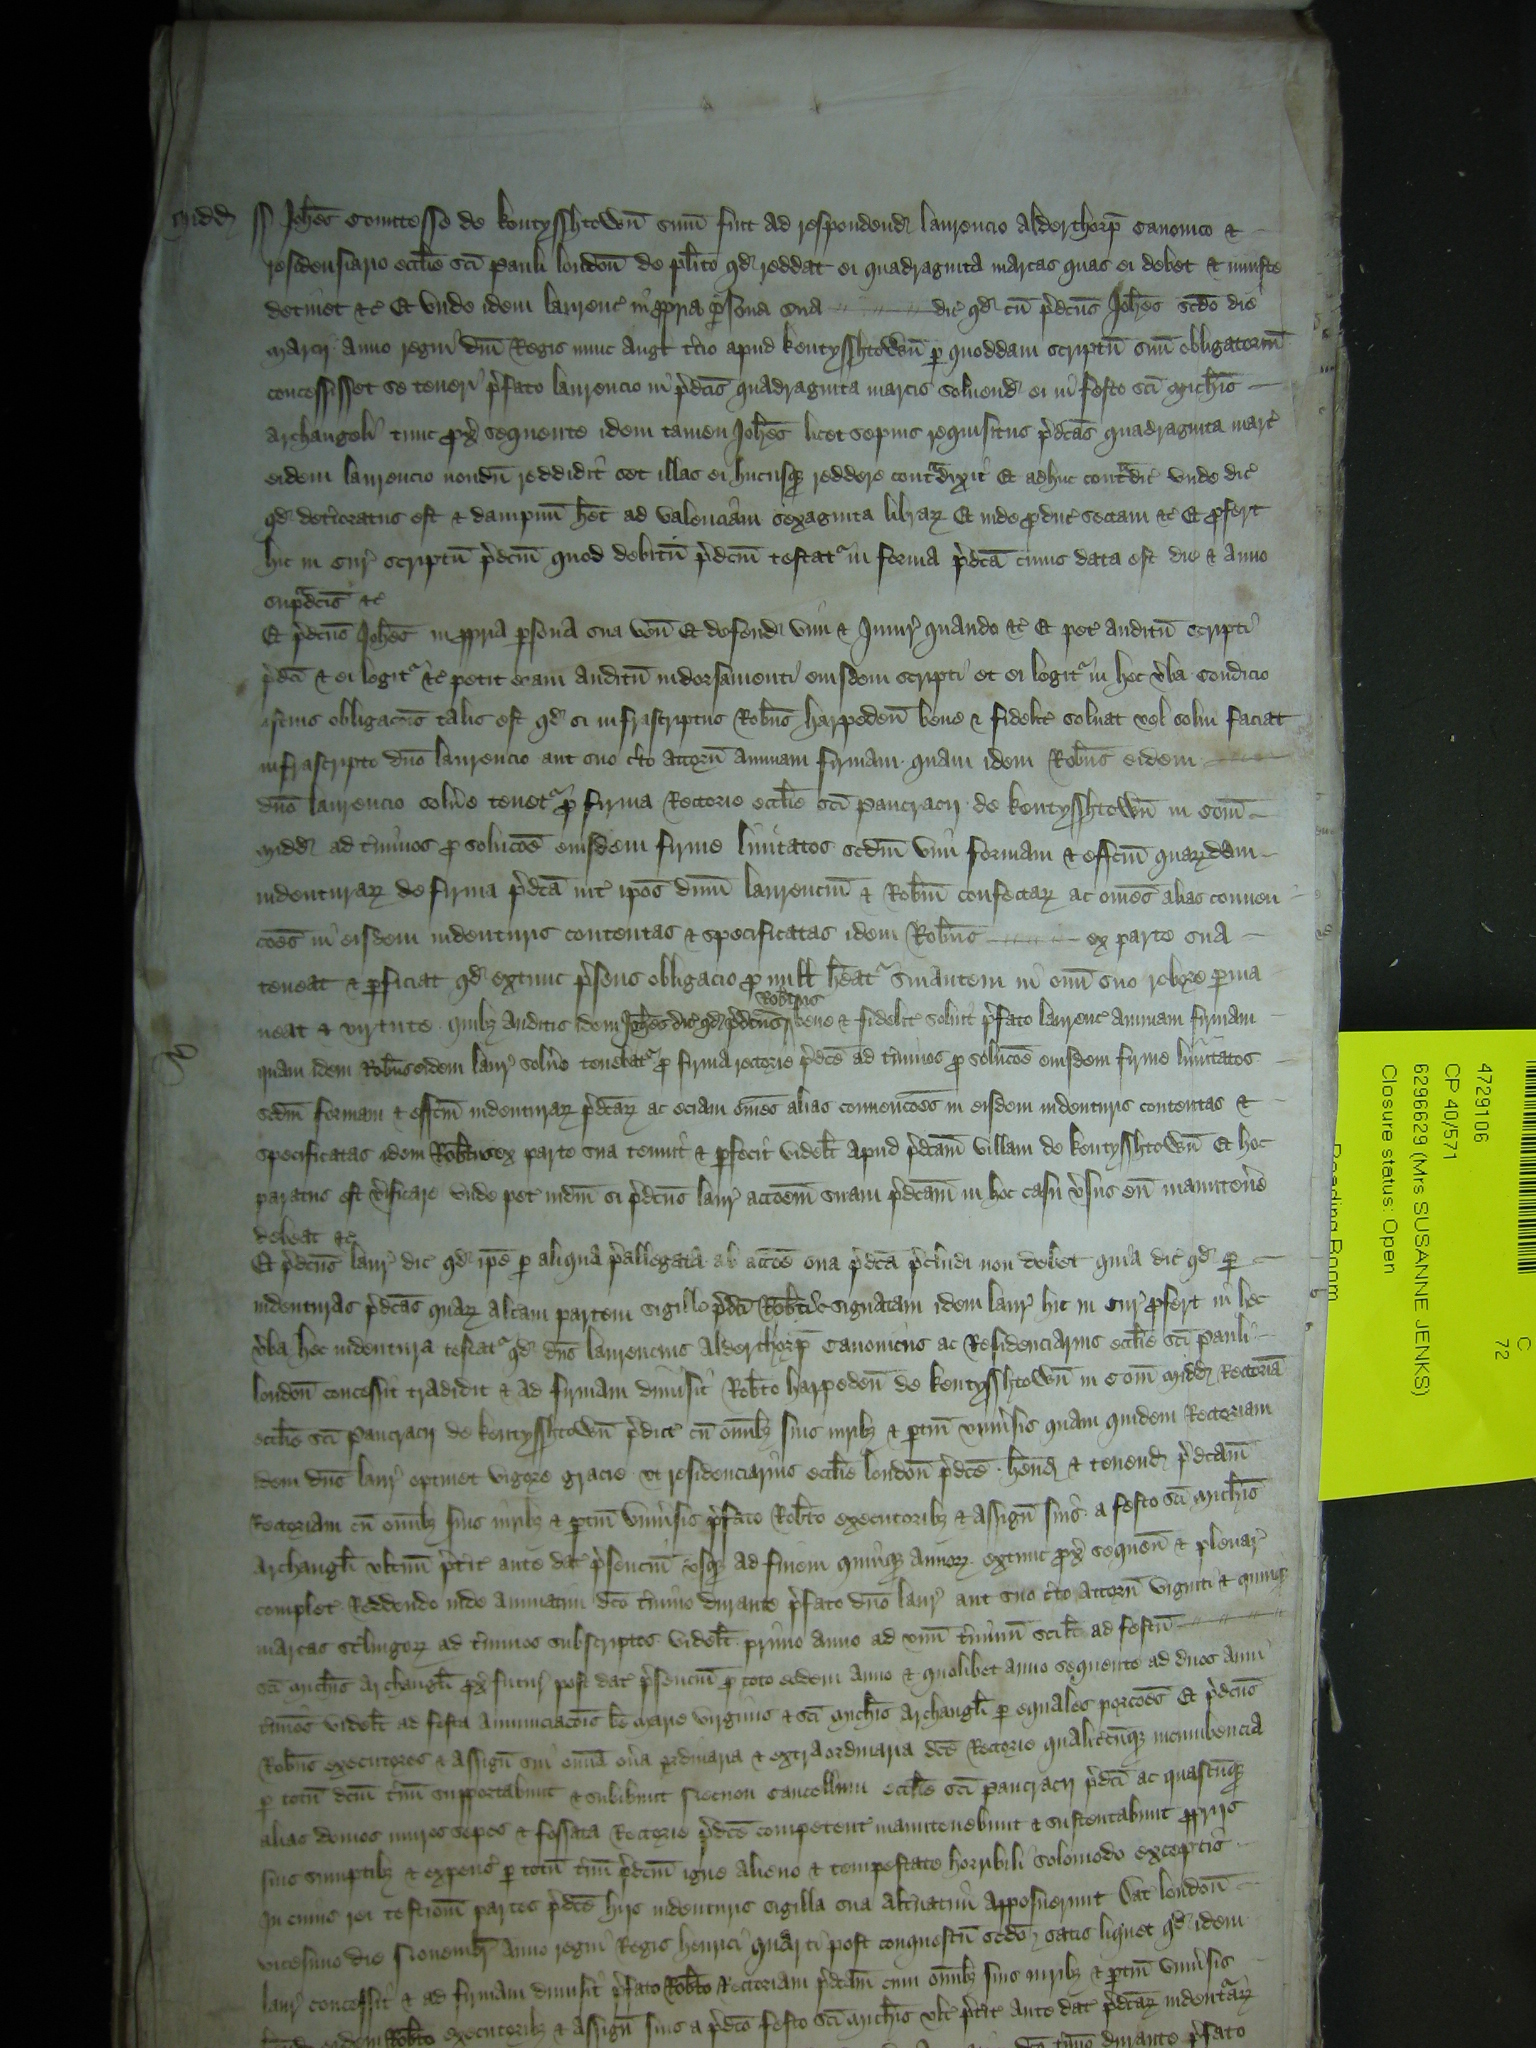 Midd ss Johes Comitesse de Kentysshtown sum fuit ad respondend Laurencio Alderthorp Canonico &
residensiario ecclie sci Pauli London de plito qd reddat ei quadraginta marcas quas ei debet & iniuste
detinet &c Et unde idem Laurenc in ppria psona sua dic qd cu pdcus Johes scdo die
Marcii anno regni dni Regis nunc Angl tcio apud Kentysshtown p quoddam scriptu suu obligatoriu
concessisset se teneri pfato Laurencio in pdcis quadraginta marcis solvend ei in festo sci Michis
Archangeli tunc px sequente idem tamen Johes licet sepius requisitus pdcas quadraginta marc
eidem Laurencio nondu reddidit set illas ei hucusq reddere contradixit Et adhuc contradic unde dic
qd deterioratus est & dampnu het ad valenciam sexaginta librar Et inde pduc sectam &c Et pfert
hic in cur scriptu pdcm quod debitu pdcm testat in forma pdca cuius data est die & anno
supadcis &c
Et pdcus Johes in ppria psona sua ven Et defend vim & Iniur quando &c Et pet auditu scripti
pdci & ei legit &c petit eciam auditu indorsamenti eiusdem scripti et ei legit in hec vba Condicio
istius obligacois talis est qd si infrascriptus Robtus Harpeden bene & fidelit solvat vel solvi faciat
infrascripto dno Laurencio aut suo cto attorn annuam firmam quam idem Robtus eidem
dno Laurencio solve tenet p firma Rectorie ecclie sci Pancracii de Kentysshtown in Com
Midd ad tminos p solucoe eiusdem firme limitatos scdm vim formam & effcm quardam
indenturar de firma pdca int ipos dnm Laurenciu & Robtm confectar ac omes alias conven
coes in eisdem indenturis contentas & specificatas idem Robtus ex parte sua
teneat & pficiat qd extunc psens obligacio p null heat Sinautem in omi suo robore pma
neat & virtute quibz auditis idem Johes dic qd pdcus Robtus bene & fidelit solvit pfato Laurenc annuam firmam
quam idem Robtus eidem Laur solve tenebat p firma rectorie pdce ad tminos p solucoe eiusdem firme limitatos
scdm formam & effcm indenturar pdcar ac eciam omes alias convencoes in eisdem indenturis contentas &
specificatas idem Robtus ex parte sua tenuit & pfecit videlt apud pdcam villam de Kentysshtown Et hoc
paratus est vificare unde pet iudm si pdcus Laur accoem suam pdcam in hoc casu vsus eu manutenere
debeat &c
Et pdcus Laur dic qd ipe p aliqua pallegata ab accoe sua pdca pcludi non debet quia dic qd p
indenturas pdcas quar altam partem sigillo pdci Robti signatam idem Laur hic in cur pfert in hec
vba hec indentura testat qd dns Laurencius Alderthorp Canonicus ac Residenciarius ecclie sci Pauli
London concessit tradidit & ad firmam dimisit Robto Harpeden de Kentysshtown in Com Midd Rectoriam
ecclie sci Pancracii de Kentysshtown pdict cu omibz suis iuribz & ptin univsis quam quidem Rectoriam
idem dns Laur optinet vigore gracie ut residenciarius ecclie London pdce hend & tenend pdcam
Rectoriam cu omibz suis iuribz & ptin univsis pfato Robto executoribz & assign suis a festo sci Michis
Archangli ultim ptit ante dat psenciu usq ad finem quinq annor extunc px sequen & plenar
complet Reddendo inde annuatim dco tmino durante pfato dno Laur aut suo cto attorn viginti & quinq
marcas stlingor ad tminos subscriptos videlt primo anno ad unu tminu scilt ad festu
sci Michis Archangli px futur post dat psenciu p toto eodem anno & quolibet anno sequente ad duos anni
tminos videlt ad festa Annunciacois be Marie virginis & sci Michis Archangli p equales porcoes Et pdcus
Robtus executores & assign sui omia ona ordinaria & extraordinaria dce Rectorie qualitcuq incumbencia
p totu dcm tmu supportabunt & subibunt Necnon Cancellum ecclie sci Pancracii pdci ac quascuq
alias domos muros sepes & fossata Rectorie pdce competent manutenebunt & sustentabunt ppriis
suis sumptibz & expens p totu tmu pdcm igne alieno & tempestate horribili solomodo exceptis
In cuius rei testioniu partes pdce hiis indenturis sigilla sua altnatim apposuerunt Dat London
vicesimo die Novembr Anno regni Regis Henrici quarti post conquestu scdo satis liquet qd idem
Laur concessit & ad firmam dimisit pfato Robto Rectoriam pdcam cum omibz suis iuribz & ptin univsis
eidem Robto executoribz & assign suis a pdco festo sci Michis ult ptit ante dat pdcar indenturar
tmino durante pfato
4729106
CP 40/571
6296629 (Mrs SUSANNE JENKS)
Closure status: Open
C
72
Reading Room